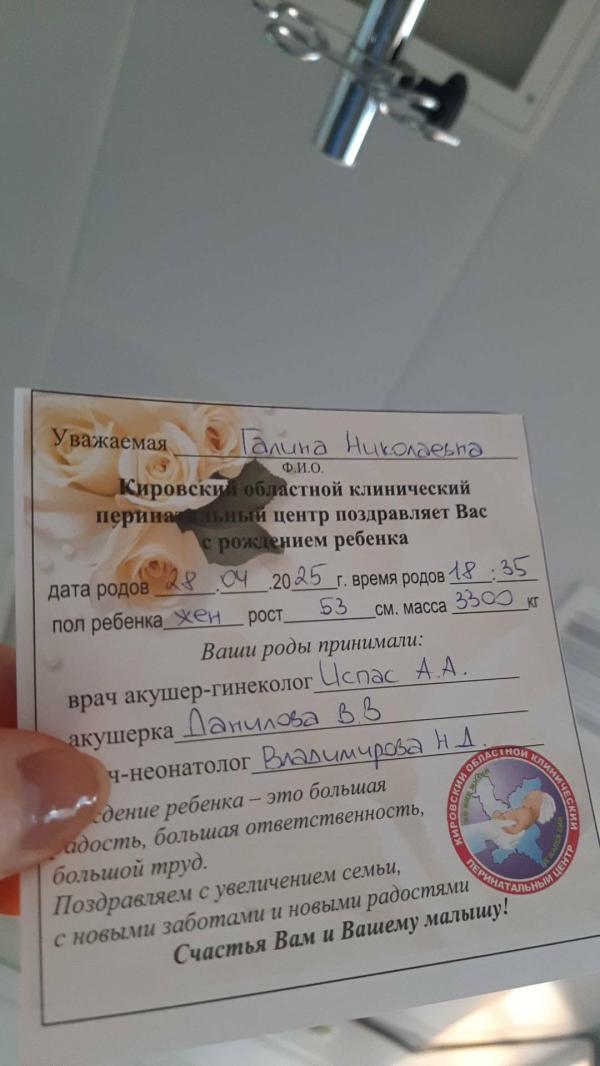 Уважаемая Галина Николаевна
Ф.И.О.
Кировский областной клинический
перинатальный центр поздравляет Вас
с рождением ребенка
дата родов 28.04.2025 г. время родов 18:35
пол ребенка жен рост 53 см. масса 3300 кг
Ваши роды принимали:
врач акушер-гинеколог Испас А.А.
акушерка Данилова В.В
ч-неонатолог Владимирова Н.Д.
дение ребенка – это большая
адость, большая ответственность,
большой труд.
Поздравляем с увеличением семьи,
с новыми заботами и новыми радостями
Счастья Вам и Вашему малышу!
КИРОВСКИЙ ОБЛАСТНОЙ КЛИНИЧЕСКИЙ
ПЕРИНАТАЛЬНЫЙ ЦЕНТР